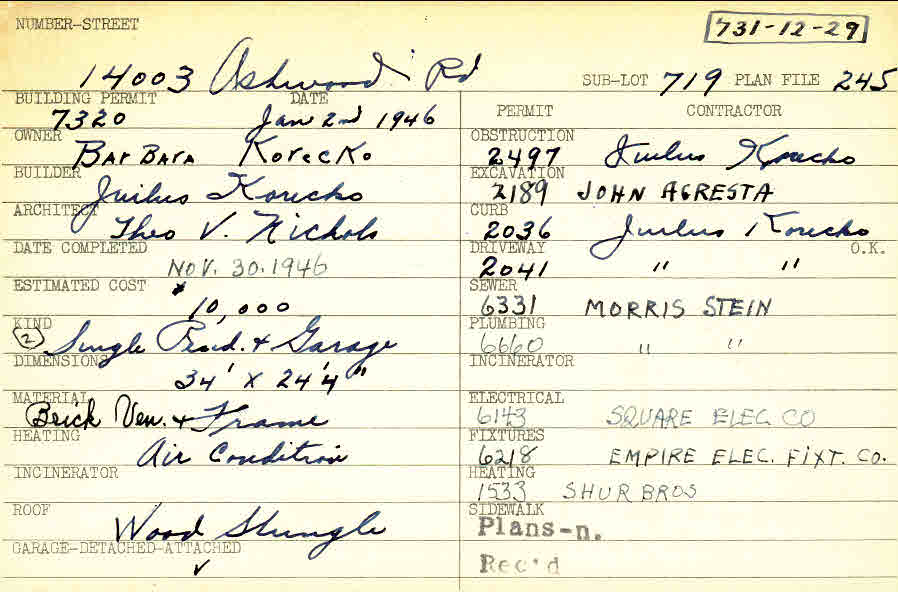 NUMBER-STREET
731-12-29
14003 Ashwood Rd
SUB-LOT 719 PLAN FILE 245
BUILDING PERMIT DATE
7320 Jan 2nd 1946
OWNER
BarBara Korecko
BUILDER
Juilus Korecko
ARCHITECT
Theo V. Nichols
DATE COMPLETED
NOV. 30. 1946
ESTIMATED COST
10,000
KIND
(2) Single Resid. + Garage
DIMENSIONS
34' x 24'4"
MATERIAL
Brick Ven. + Frame
HEATING
Air Condition
INCINERATOR
ROOF
Wood Shingle
GARAGE-DETACHED-ATTACHED
✓
PERMIT CONTRACTOR
OBSTRUCTION
2497 Juilus Korecko
EXCAVATION
2189 JOHN AGRESTA
CURB
2036 Juilus Korecko
DRIVEWAY O.K.
2041 " "
SEWER
6331 MORRIS STEIN
PLUMBING
6660 " "
INCINERATOR
ELECTRICAL
6143 SQUARE ELEC CO
FIXTURES
6218 EMPIRE ELEC. FIXT. CO.
HEATING
1533 SHUR BROS
SIDEWALK
Plans-n.
Rec'd